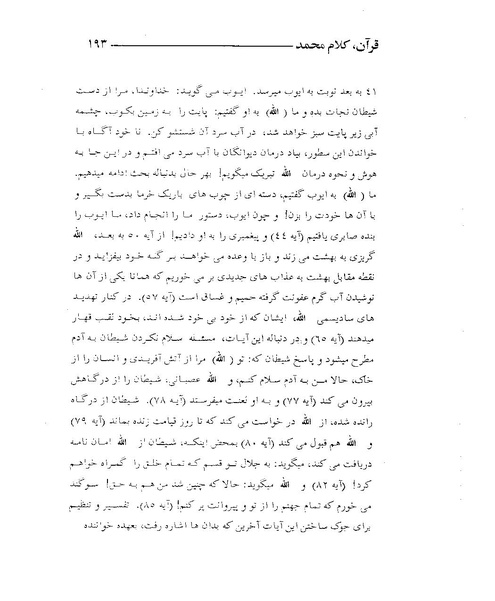 قرآن، کلام محمد ۱۹۳
۴۱ به بعد نوبت به ایوب میرسد. ایوب می گوید: خداوندا، مرا از دست
شیطان نجات بده و ما (الله) به او گفتیم: پایت را به زمین بکوب، چشمه
آبی زیر پایت سبز خواهد شد، در آب سرد آن شستشو کن. تا خود آگاه با
خواندن این سطور، بیاد درمان دیوانگان با آب سرد می افتم و در این جا به
هوش و نحوه درمان الله تبریک میگویم! بهر حال بدنباله بحث ادامه میدهیم.
ما (الله) به ایوب گفتیم، دسته ای از چوب های باریک خرما بدست بگیر و
با آن ها خودت را بزن! و چون ایوب، دستور ما را انجام داد، ما ایوب را
بنده صابری یافتیم (آیه ۴۴) و پیغمبری را به او دادیم! از آیه ۵۰ به بعد، الله
گریزی به بهشت می زند و باز با وعده می خواهد بر گله خود بیفزاید و در
نقطه مقابل بهشت به عذاب های جدیدی بر می خوریم که همانا یکی از آن ها
نوشیدن آب گرم عفونت گرفته حمیم و غساق است (آیه ۵۷). در کنار تهدید
های سادیسمی الله، ایشان که از خود بی خود شده اند، بخود لقب قهار
میدهند (آیه ۶۵) و در دنباله این آیات، مسئله سلام نکردن شیطان به آدم
مطرح میشود و پاسخ شیطان که: تو (الله) مرا از آتش آفریدی و انسان را از
خاک، حالا من به آدم سلام کنم، و الله عصبانی، شیطان را از درگاهش
بیرون می کند (آیه ۷۷) و به او لعنت میفرستد (آیه ۷۸). شیطان از درگاه
رانده شده، از الله در خواست می کند که تا روز قیامت زنده بماند (آیه ۷۹)
و الله هم قبول می کند (آیه ۸۰) بمحض اینکه، شیطان از الله امان نامه
دریافت می کند، میگوید: به جلال تو قسم که تمام خلق را گمراه خواهم
کرد! (آیه ۸۲) و الله میگوید: حالا که چنین شد من هم به حق! سوگند
می خورم که تمام جهنم را از تو و پیروانت پر کنم! (آیه ۸۵). تفسیر و تنظیم
برای جوک ساختن این آیات آخرین که بدان ها اشاره رفت، بعهده خواننده